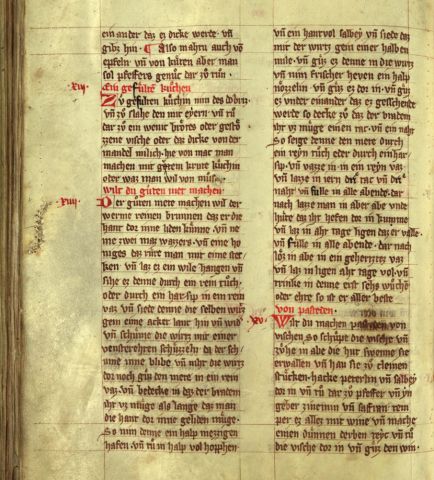 ein ander daz ez dicke werde . vn̄
gibz hin . Also mahtu auch vō
epfeln vn̄ von küten aber man
sol pfeffers genuc dar zu tun .
.xiij. Ein gefültē kuchen
Zu gefulten kuchin
vn̄ zu slahe den mit eyern . vn̄ tu
dar zu ein wenic brotes oder gestoz
zene vische oder daz dicke von der
mandel milich . hie von mac man
machen mit krute kuchin
oder waz man wil von muse .
wilt du guten met machen
.xiiij. Der guten mete machen wil der
werme reinen brunnen daz er die
hant dor inne liden kunne . vn̄ ne
me zwei maz wazzers . vn̄ eine ho
niges daz rure man mit eime stec
ken . vn̄ laz ez ein wile hangen vn̄
sihe ez denne durch ein rein tuch .
oder durch ein harsip in ein rein
vaz vn̄ siede denne die selben wirtz
gein eime acker lanc hin vn̄ wid᷑
vn̄ schume die wirtz mit einer
vensterehten schuzzeln da der sch
ume inne blibe vn̄ niht die wirtz
dor noch giuz den mete in ein rein
vaz . vn̄ bedecke in daz der bradem
iht vz müge als lange daz man
die hant dor inne geliden müge .
So nim denne ein halp mezzigen
hafen vn̄ tu in halp vol hopphen
vn̄ ein hant vol salbey vn̄ siede daz
mit der wirtz gein einer halben
mile . vn̄ giuz ez denne in die wirtz
vn̄ nim frischer heven ein halp
nozzelin . vn̄ giuz ez dor in . vn̄ giuz
ez vnder einander daz ez geschende
werde so decke zu daz der bradem
iht vz müge einen tac vn̄ ein naht .
So seige denne den mete durch
ein reyn tuch oder durch ein har
sip . vn̄ vazze in in ein reyn vaz
vn̄ lazze in iern dri tac vn̄ dri
naht vn̄ fulle in alle abende . dar
nach lazze man in aber abe vn̄
hute daz iht hefen dor in kumme
vn̄ laz in aht tage ligen daz er valle .
vn̄ fulle in alle abende . dar nach
loz in abe in ein gehertztez vaz
vn̄ laz in ligen aht tage vol . vn̄
trinke in denne erst sehs wuchē
oder ehte so ist er aller beste
von pasteden .
.xv. Wilt du machen pasteden von
vischen . so schupe die vische vn̄
zühe in abe die hut swenne sie
erwallen vn̄ hau sie zu cleinen
stücken . hacke peterlin vn̄ salbey
dor in vn̄ tu dar zu pfeffer vn̄ yn
geber zinemin vn̄ saffran tem
per ez allez mit wine vn̄ mache
einen dünnen derben teyc vn̄ tu
die vische dor in vn̄ giuz den win